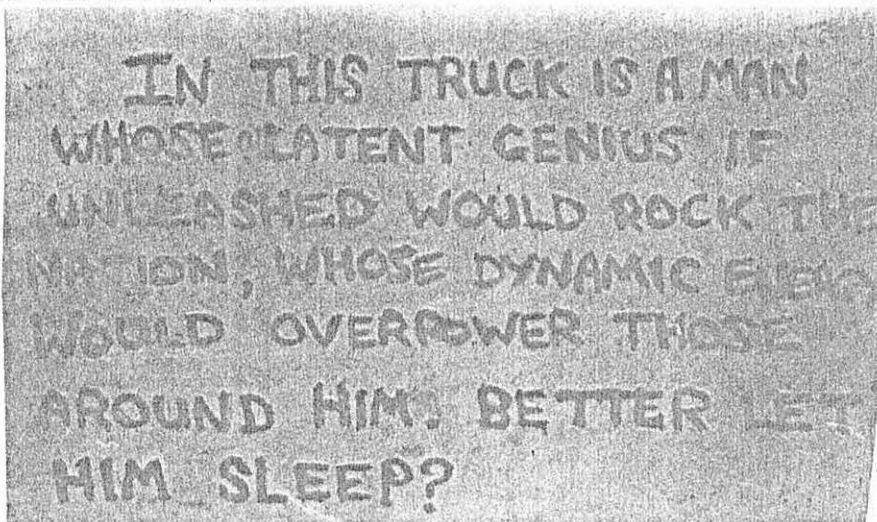 IN THIS TRUCK IS A MAN
WHOSE LATENT GENIUS IF
UNLEASHED WOULD ROCK THE
NATION, WHOSE DYNAMIC ENERGY
WOULD OVERPOWER THOSE
AROUND HIM. BETTER LET
HIM SLEEP?